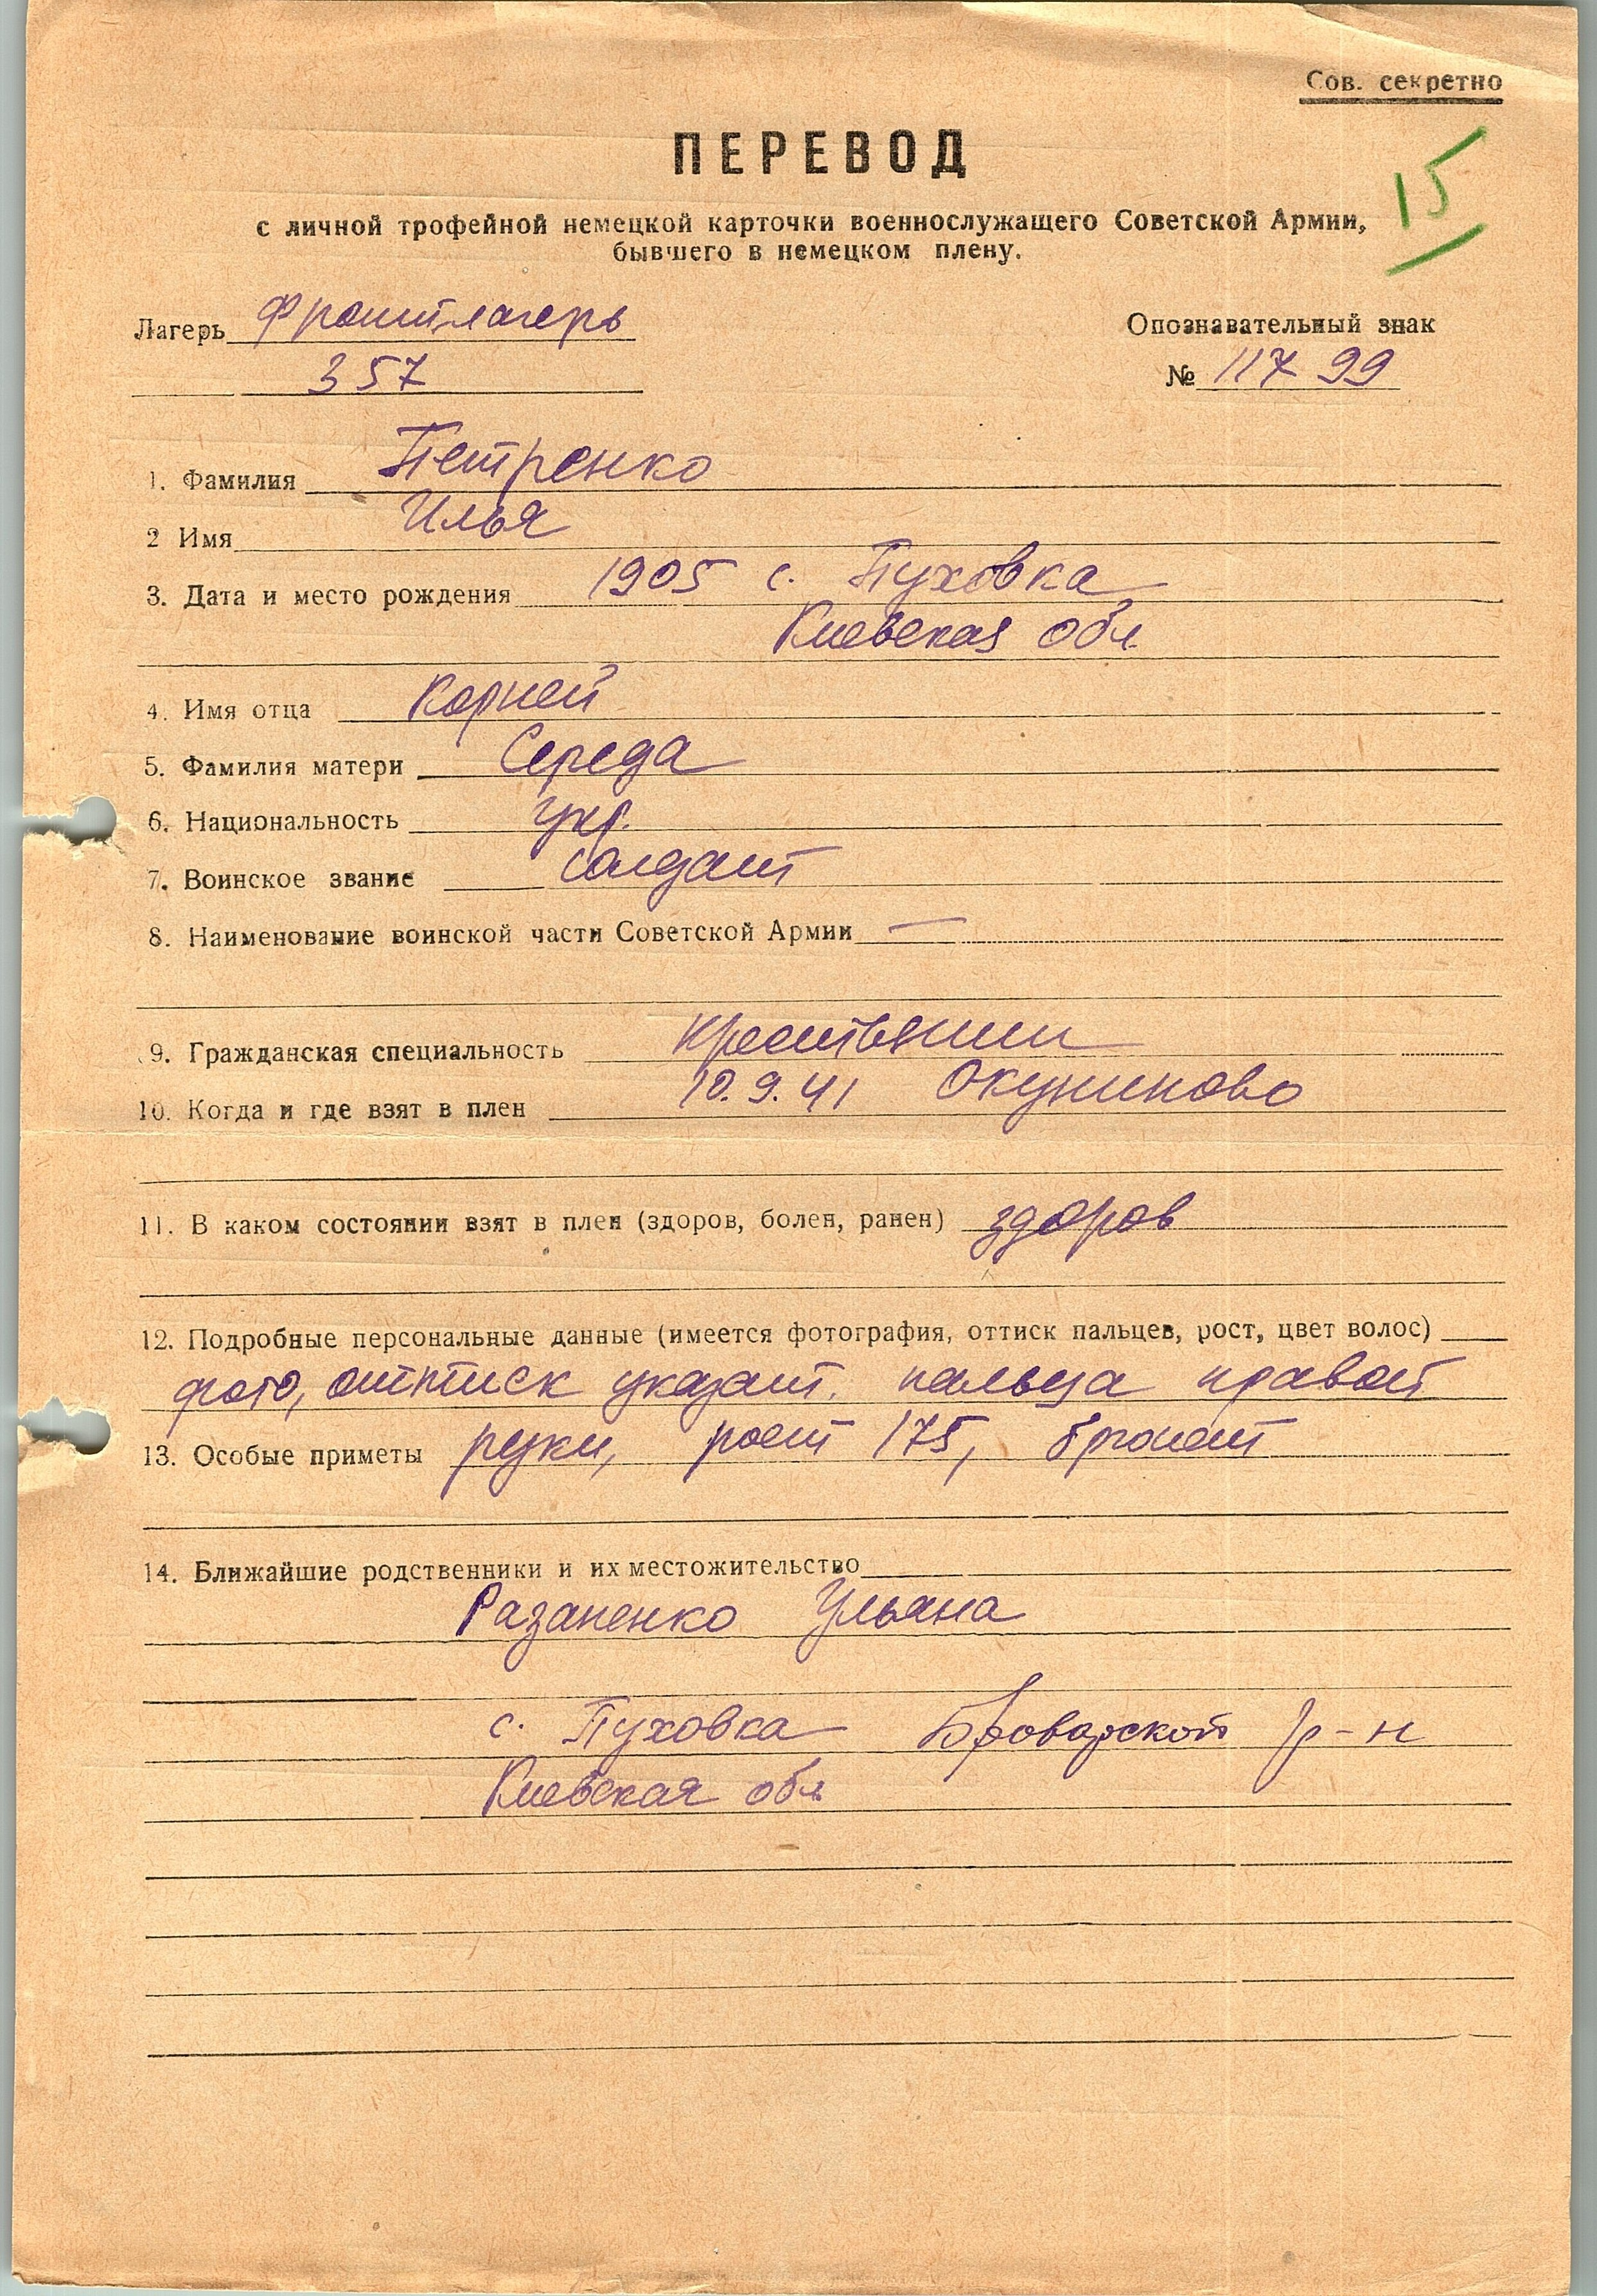 Сов. секретно
15
ПЕРЕВОД
с личной трофейной немецкой карточки военнослужащего Советской Армии,
бывшего в немецком плену.
Лагерь Фронт.лагерь
357
Опознавательный знак
№ 11799
1. Фамилия Петренко
2 Имя Илья
3. Дата и место рождения 1905 с. Пуховка
Киевская обл.
4. Имя отца Корней
5. Фамилия матери Середа
6. Национальность укр.
7. Воинское звание солдат
8. Наименование воинской части Советской Армии —
9. Гражданская специальность крестьянин
10. Когда и где взят в плен 10.9.41 Окуниново
11. В каком состоянии взят в плен (здоров, болен, ранен) здоров
12. Подробные персональные данные (имеется фотография, оттиск пальцев, рост, цвет волос)
фото, оттиск указат. пальца правой
13. Особые приметы руки, рост 175, брюнет
14. Ближайшие родственники и их местожительство
Разаненко Ульяна
с. Пуховка Броварской р-н
Киевская обл